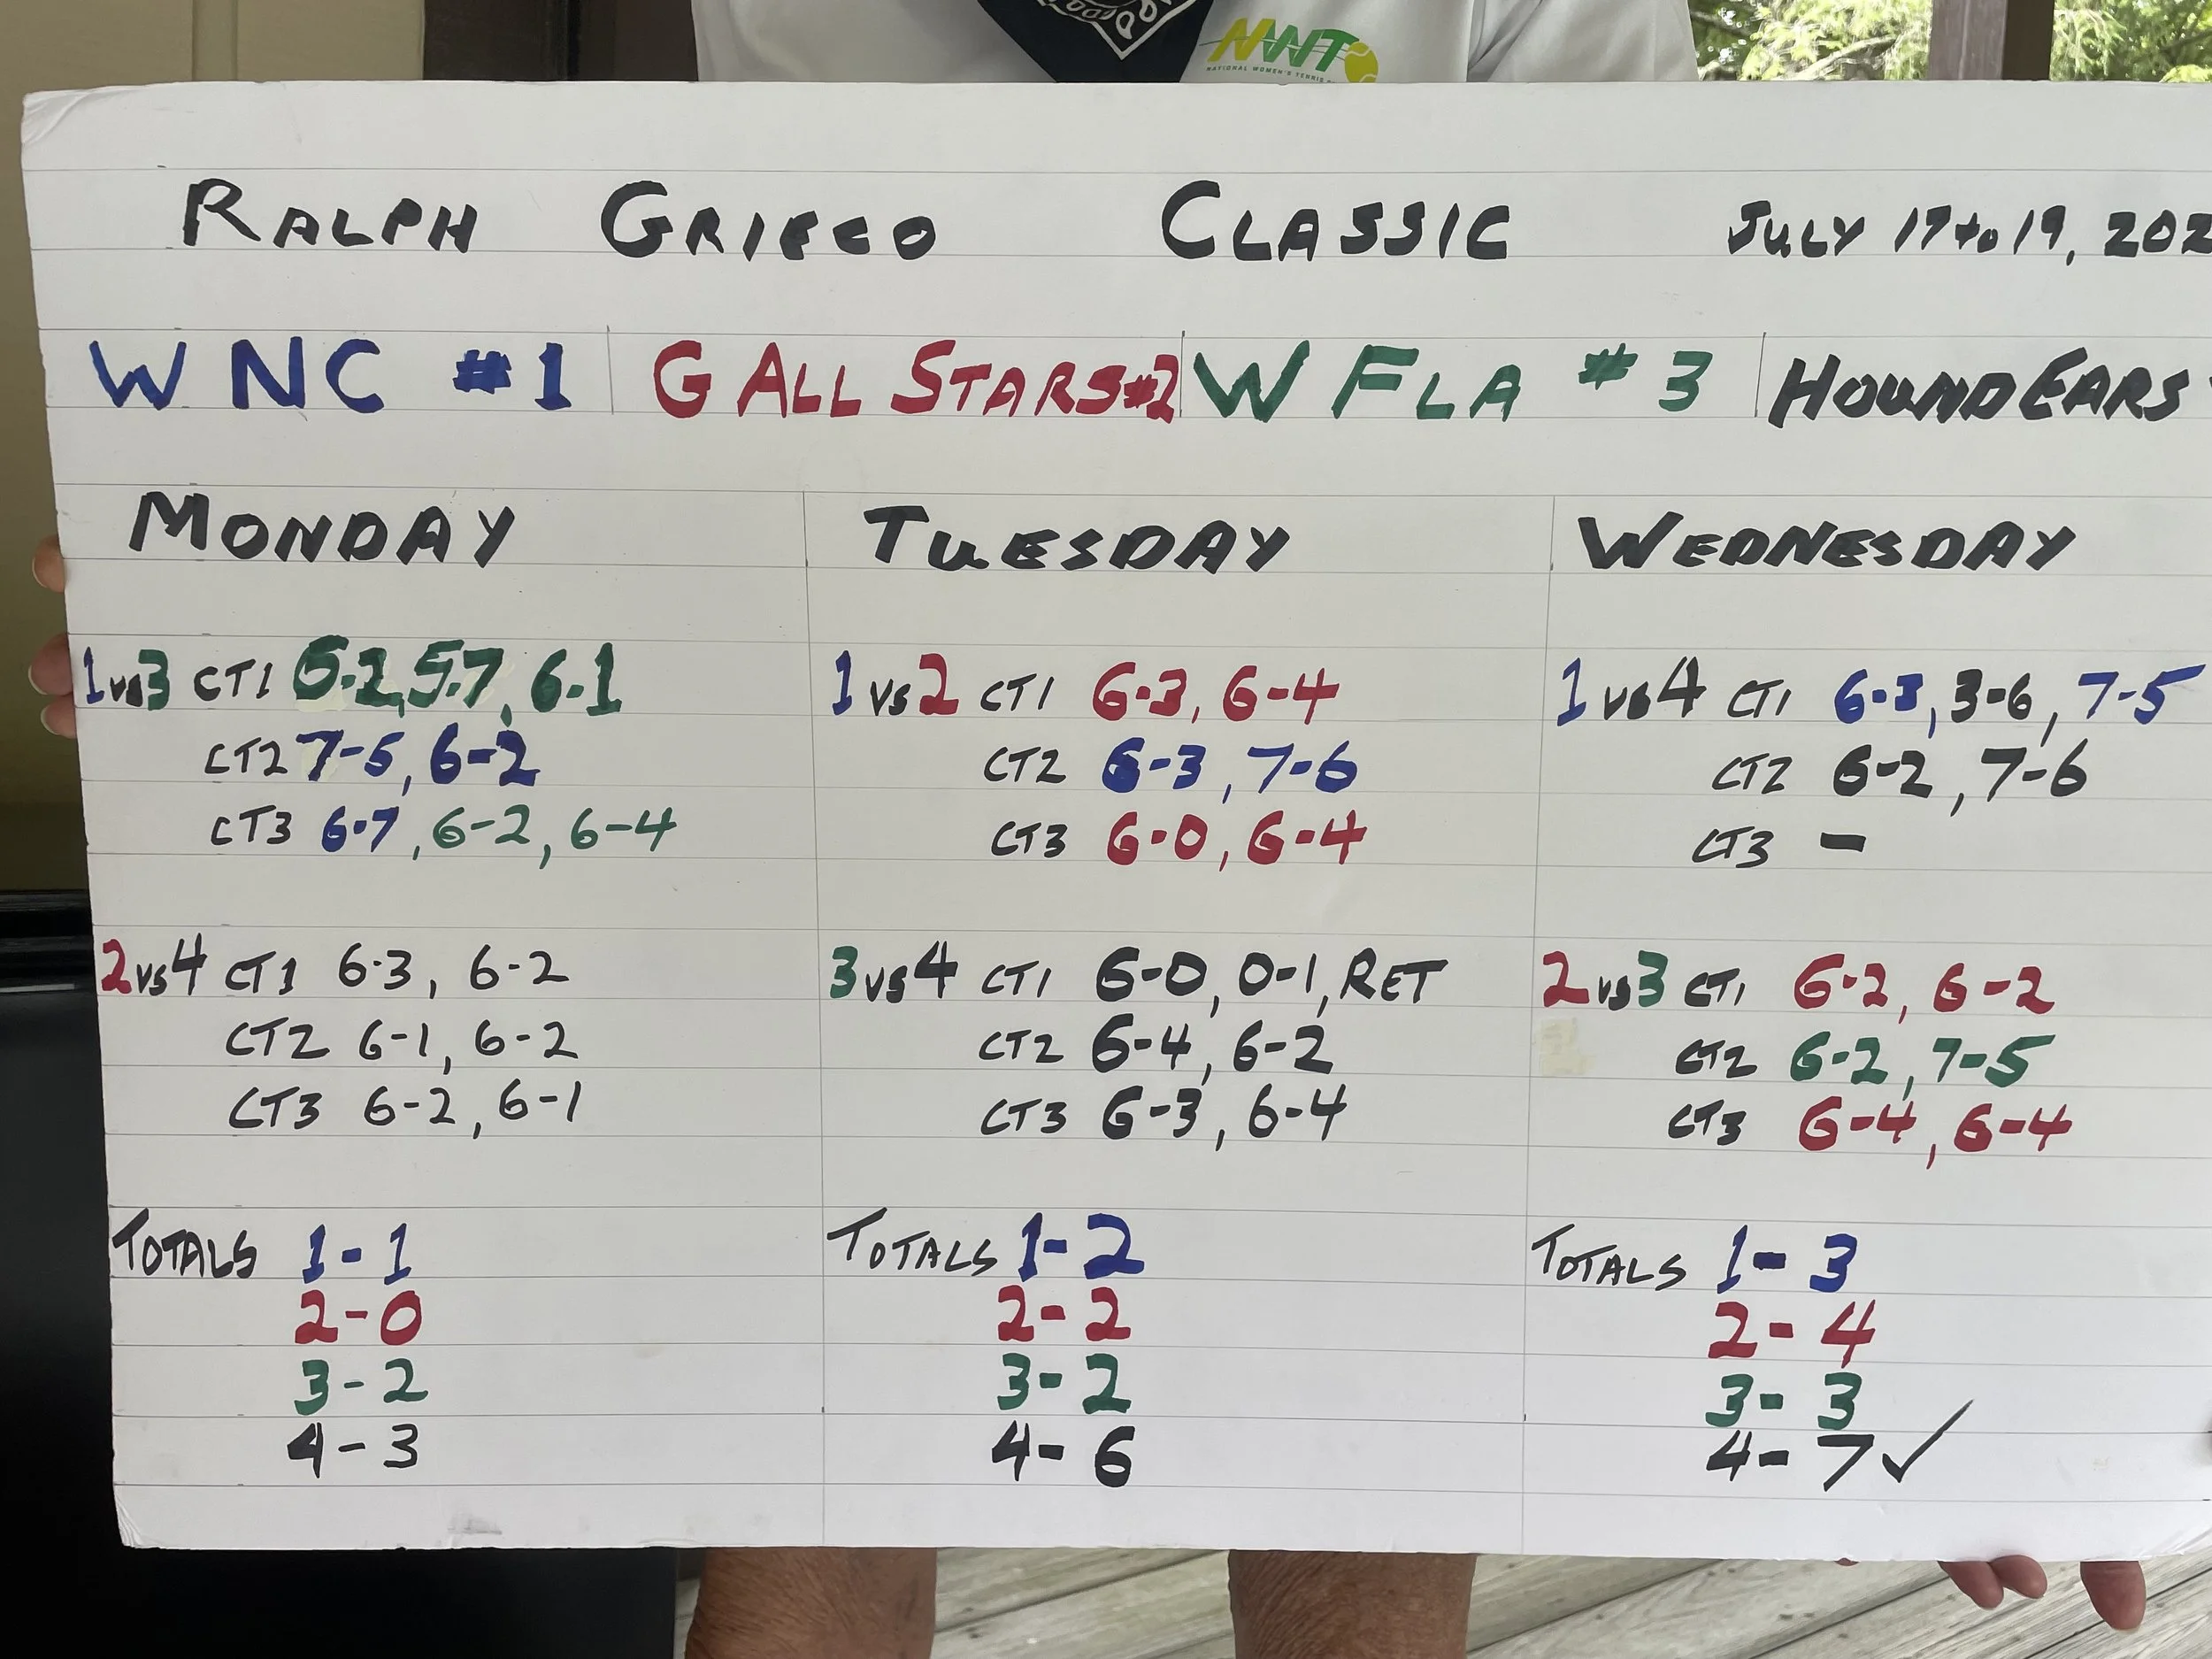 NWTO
NATIONAL WOMEN'S TENNIS
RALPH GRIECO CLASSIC JULY 17 to 19, 202
W NC #1 G ALL STARS #2 W FLA #3 HOUND EARS
MONDAY TUESDAY WEDNESDAY
1 vs 3 CT1 6-2, 5-7, 6-1
CT2 7-5, 6-2
CT3 6-7, 6-2, 6-4
2 vs 4 CT1 6-3, 6-2
CT2 6-1, 6-2
CT3 6-2, 6-1
TOTALS 1-1
2-0
3-2
4-3
1 vs 2 CT1 6-3, 6-4
CT2 6-3, 7-6
CT3 6-0, 6-4
3 vs 4 CT1 6-0, 0-1, RET
CT2 6-4, 6-2
CT3 6-3, 6-4
TOTALS 1-2
2-2
3-2
4-6
1 vs 4 CT1 6-3, 3-6, 7-5
CT2 6-2, 7-6
CT3 -
2 vs 3 CT1 6-2, 6-2
CT2 6-2, 7-5
CT3 6-4, 6-4
TOTALS 1-3
2-4
3-3
4-7 ✓